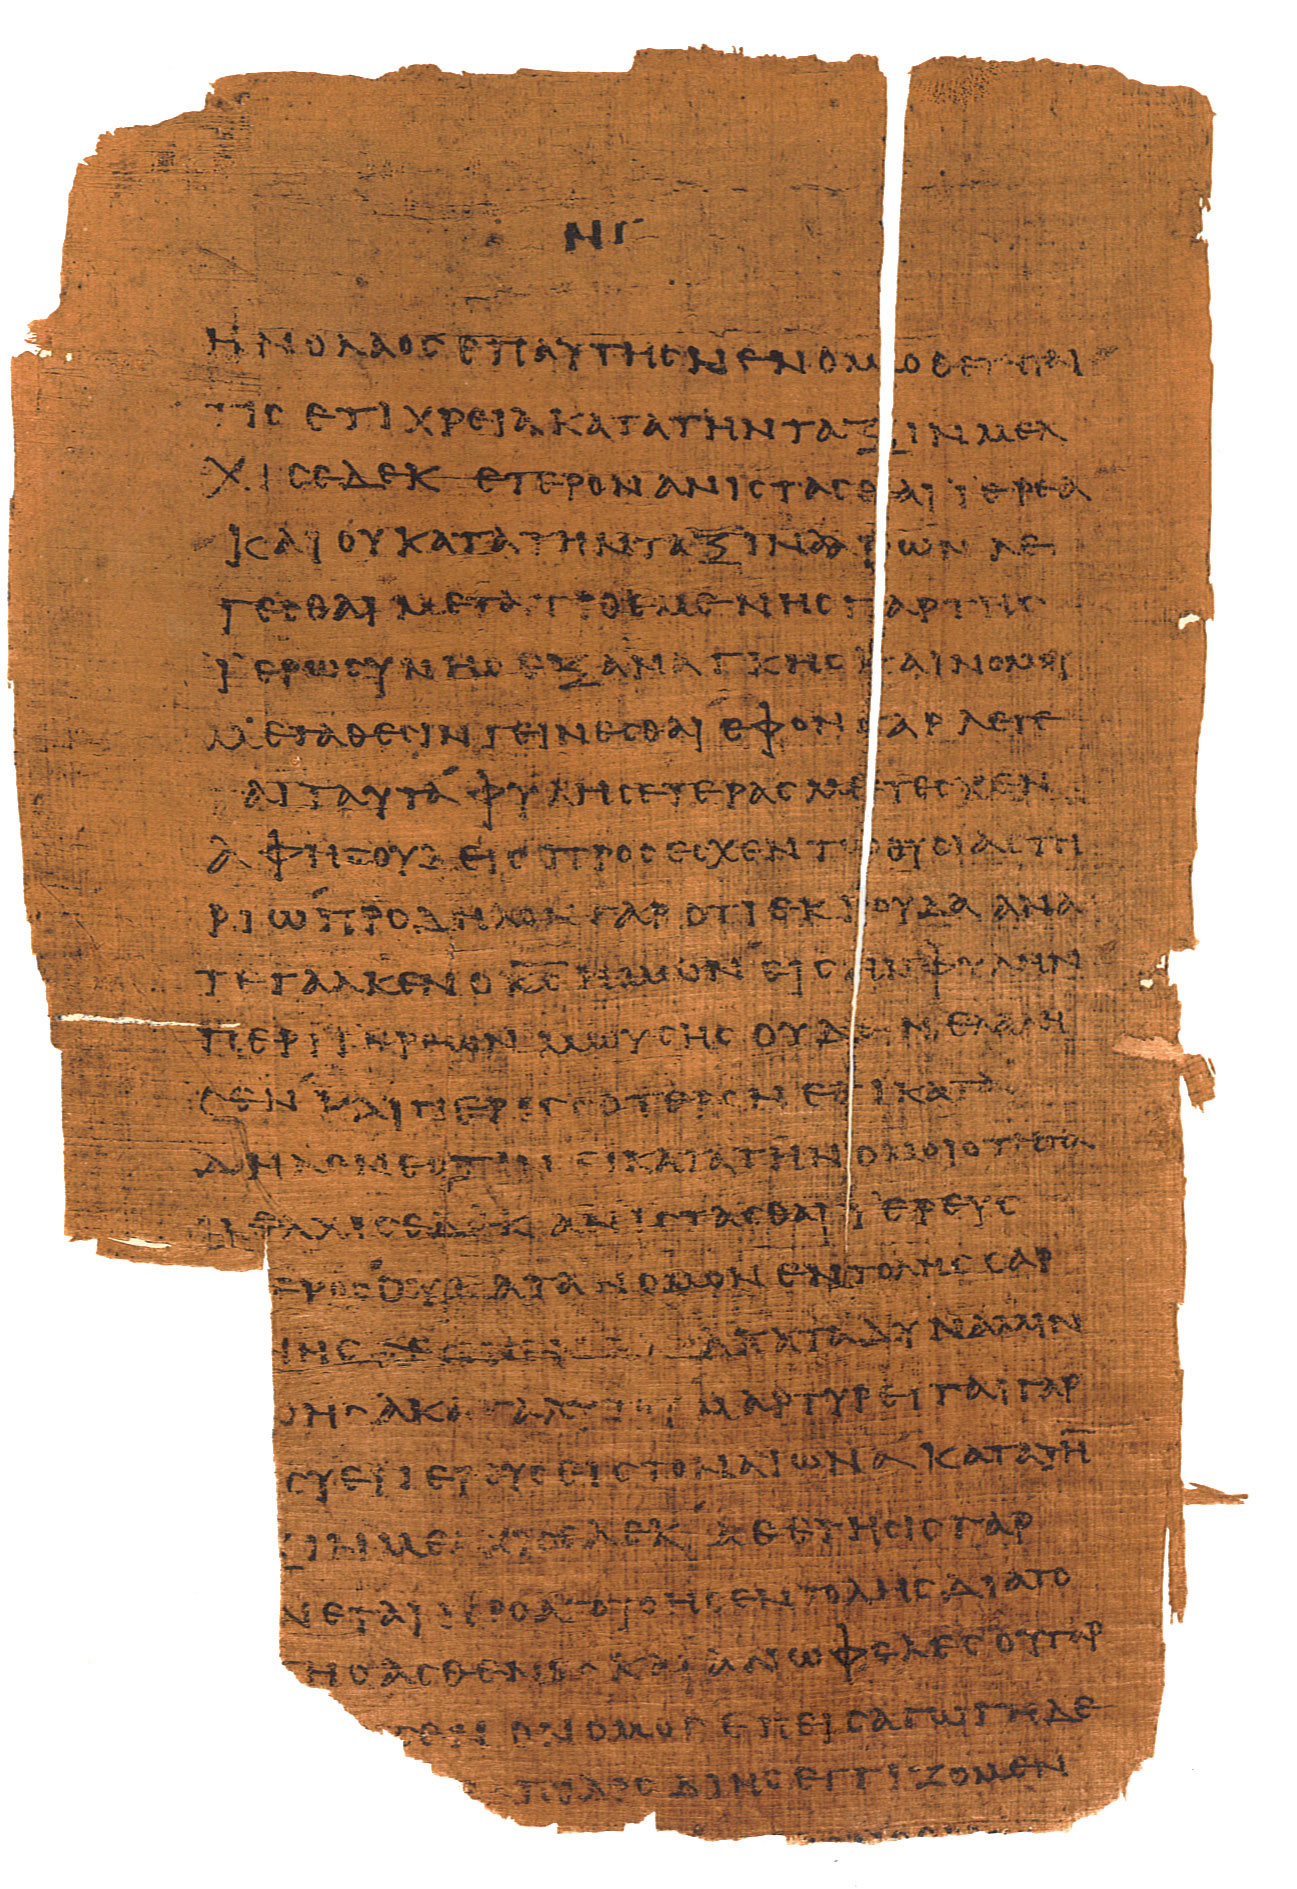 ΝΓ
ΗΝ Ο ΛΑΟΣ ΕΠ ΑΥΤΗΣ ΝΕΝΟΜΟΘΕΤΗΤΑΙ
ΤΙΣ ΕΤΙ ΧΡΕΙΑ ΚΑΤΑ ΤΗΝ ΤΑΞΙΝ ΜΕΛ
ΧΙΣΕΔΕΚ ΕΤΕΡΟΝ ΑΝΙΣΤΑΣΘΑΙ ΪΕΡΕΑ
ΚΑΙ ΟΥ ΚΑΤΑ ΤΗΝ ΤΑΞΙΝ ΑΑΡΩΝ ΛΕ
ΓΕΣΘΑΙ ΜΕΤΑΤΙΘΕΜΕΝΗΣ ΓΑΡ ΤΗΣ
ΙΕΡΩΣΥΝΗΣ ΕΞ ΑΝΑΓΚΗΣ ΚΑΙ ΝΟΜΟΥ
ΜΕΤΑΘΕΣΙΝ ΓΕΙΝΕΣΘΑΙ ΕΦ ΟΝ ΓΑΡ ΛΕΓΕ
ΑΙ ΤΑΥΤΑ ΦΥΛΗΣ ΕΤΕΡΑΣ ΜΕΤΕΣΧΕΝ
ΑΦ ΗΣ ΟΥΔΕΙΣ ΠΡΟΣΕΣΧΕΝ ΤΩ ΘΥΣΙΑΣΤΗ
ΡΙΩ ΠΡΟΔΗΛΟΝ ΓΑΡ ΟΤΙ ΕΚ ΙΟΥΔΑ ΑΝΑ
ΤΕΤΑΛΚΕΝ Ο ΚΣ ΗΜΩΝ ΕΙΣ ΗΝ ΦΥΛΗΝ
ΠΕΡΙ ΙΕΡΕΩΝ ΜΩΥΣΗΣ ΟΥΔΕΝ ΕΛΑΛΗ
ΣΕΝ ΚΑΙ ΠΕΡΙΣΣΟΤΕΡΟΝ ΕΤΙ ΚΑΤΑ
ΔΗΛΟΝ ΕΣΤΙΝ ΕΙ ΚΑΤΑ ΤΗΝ ΟΜΟΙΟΤΗΤΑ
ΜΕΛΧΙΣΕΔΕΚ ΑΝΙΣΤΑΣΘΑΙ ΪΕΡΕΥΣ
ΕΡΟΣ ΟΣ ΟΥ ΚΑΤΑ ΝΟΜΟΝ ΕΝΤΟΛΗΣ ΣΑΡ
ΙΝΗΣ ΚΑΤΑ ΔΥΝΑΜΙΝ
ΩΗΣ ΑΚΑΤΑΛΥΤΟΥ ΜΑΡΤΥΡΕΙΤΑΙ ΓΑΡ
ΣΥ ΕΙ ΙΕΡΕΥΣ ΕΙΣ ΤΟΝ ΑΙΩΝΑ ΚΑΤΑ ΤΗ̅
ΞΙΝ ΜΕΛΧΙΣΕΔΕΚ ΑΘΕΤΗΣΙΣ ΓΑΡ
ΝΕΤΑΙ ΠΡΟΑΓΟΥΣΗΣ ΕΝΤΟΛΗΣ ΔΙΑ ΤΟ
ΤΗΣ ΑΣΘΕΝΕΣ ΚΑΙ ΑΝΩΦΕΛΕΣ ΟΥ ΓΑΡ
Ο ΝΟΜΟΣ ΕΠΕΙΣΑΓΩΓΗ ΔΕ
ΠΙΔΟΣ ΔΙ ΗΣ ΕΓΓΙΖΟΜΕΝ